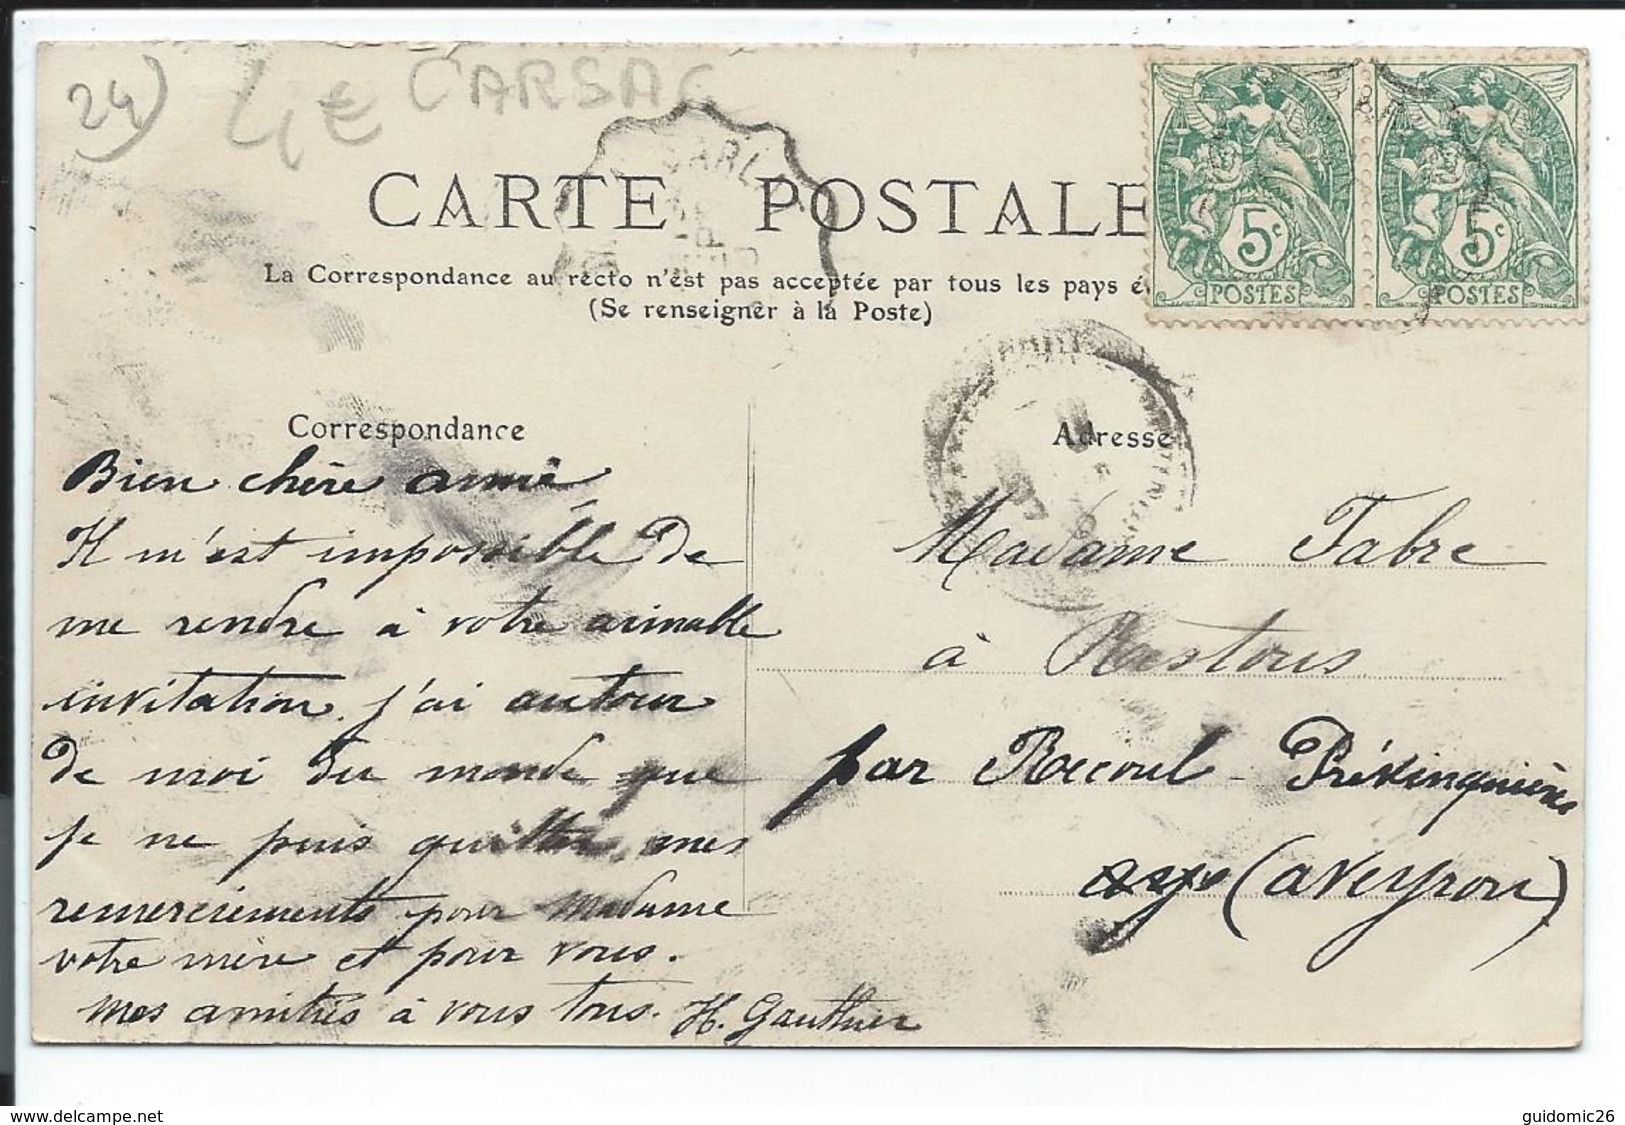 24)
4€ CARSAC
SARLA
CARTE POSTALE
La Correspondance au recto n'est pas acceptée par tous les pays é
(Se renseigner à la Poste)
5c
POSTES
5c
POSTES
Correspondance
Bien chère amie
Il m'est impossible de
me rendre à votre aimable
invitation. j'ai autour
de moi du monde que
je ne puis quitter. mes
remerciements pour Madame
votre mère et pour vous.
mes amitiés à vous tous. H. Gauthier
Adresse
Madame Fabre
à Rastous
par Recoul - Prévinquières
(aveyron)
www.delcampe.net
guidomic26